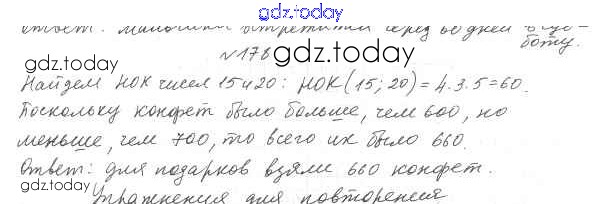 gdz.today
Ответ: мальчики встретятся через 60 дней в суб-
боту.
№178
gdz.today
gdz.today
Найдем НОК чисел 15 и 20: НОК(15; 20) = 4·3·5=60.
Поскольку конфет было больше, чем 600, но
меньше, чем 700, то всего их было 660.
Ответ: для подарков взяли 660 конфет.
gdz.today
gdz.today
Упражнения для повторения